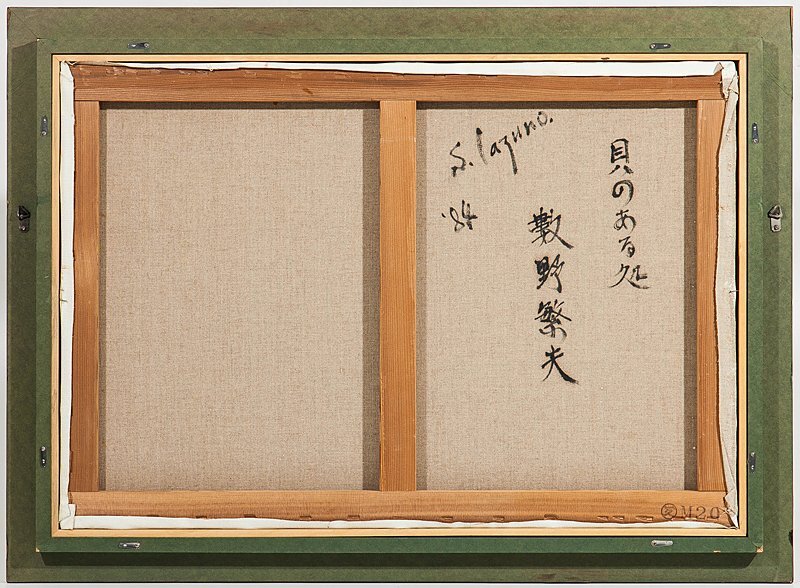 貝のある処
數野繁夫
S. Cazuno.
'84
M20